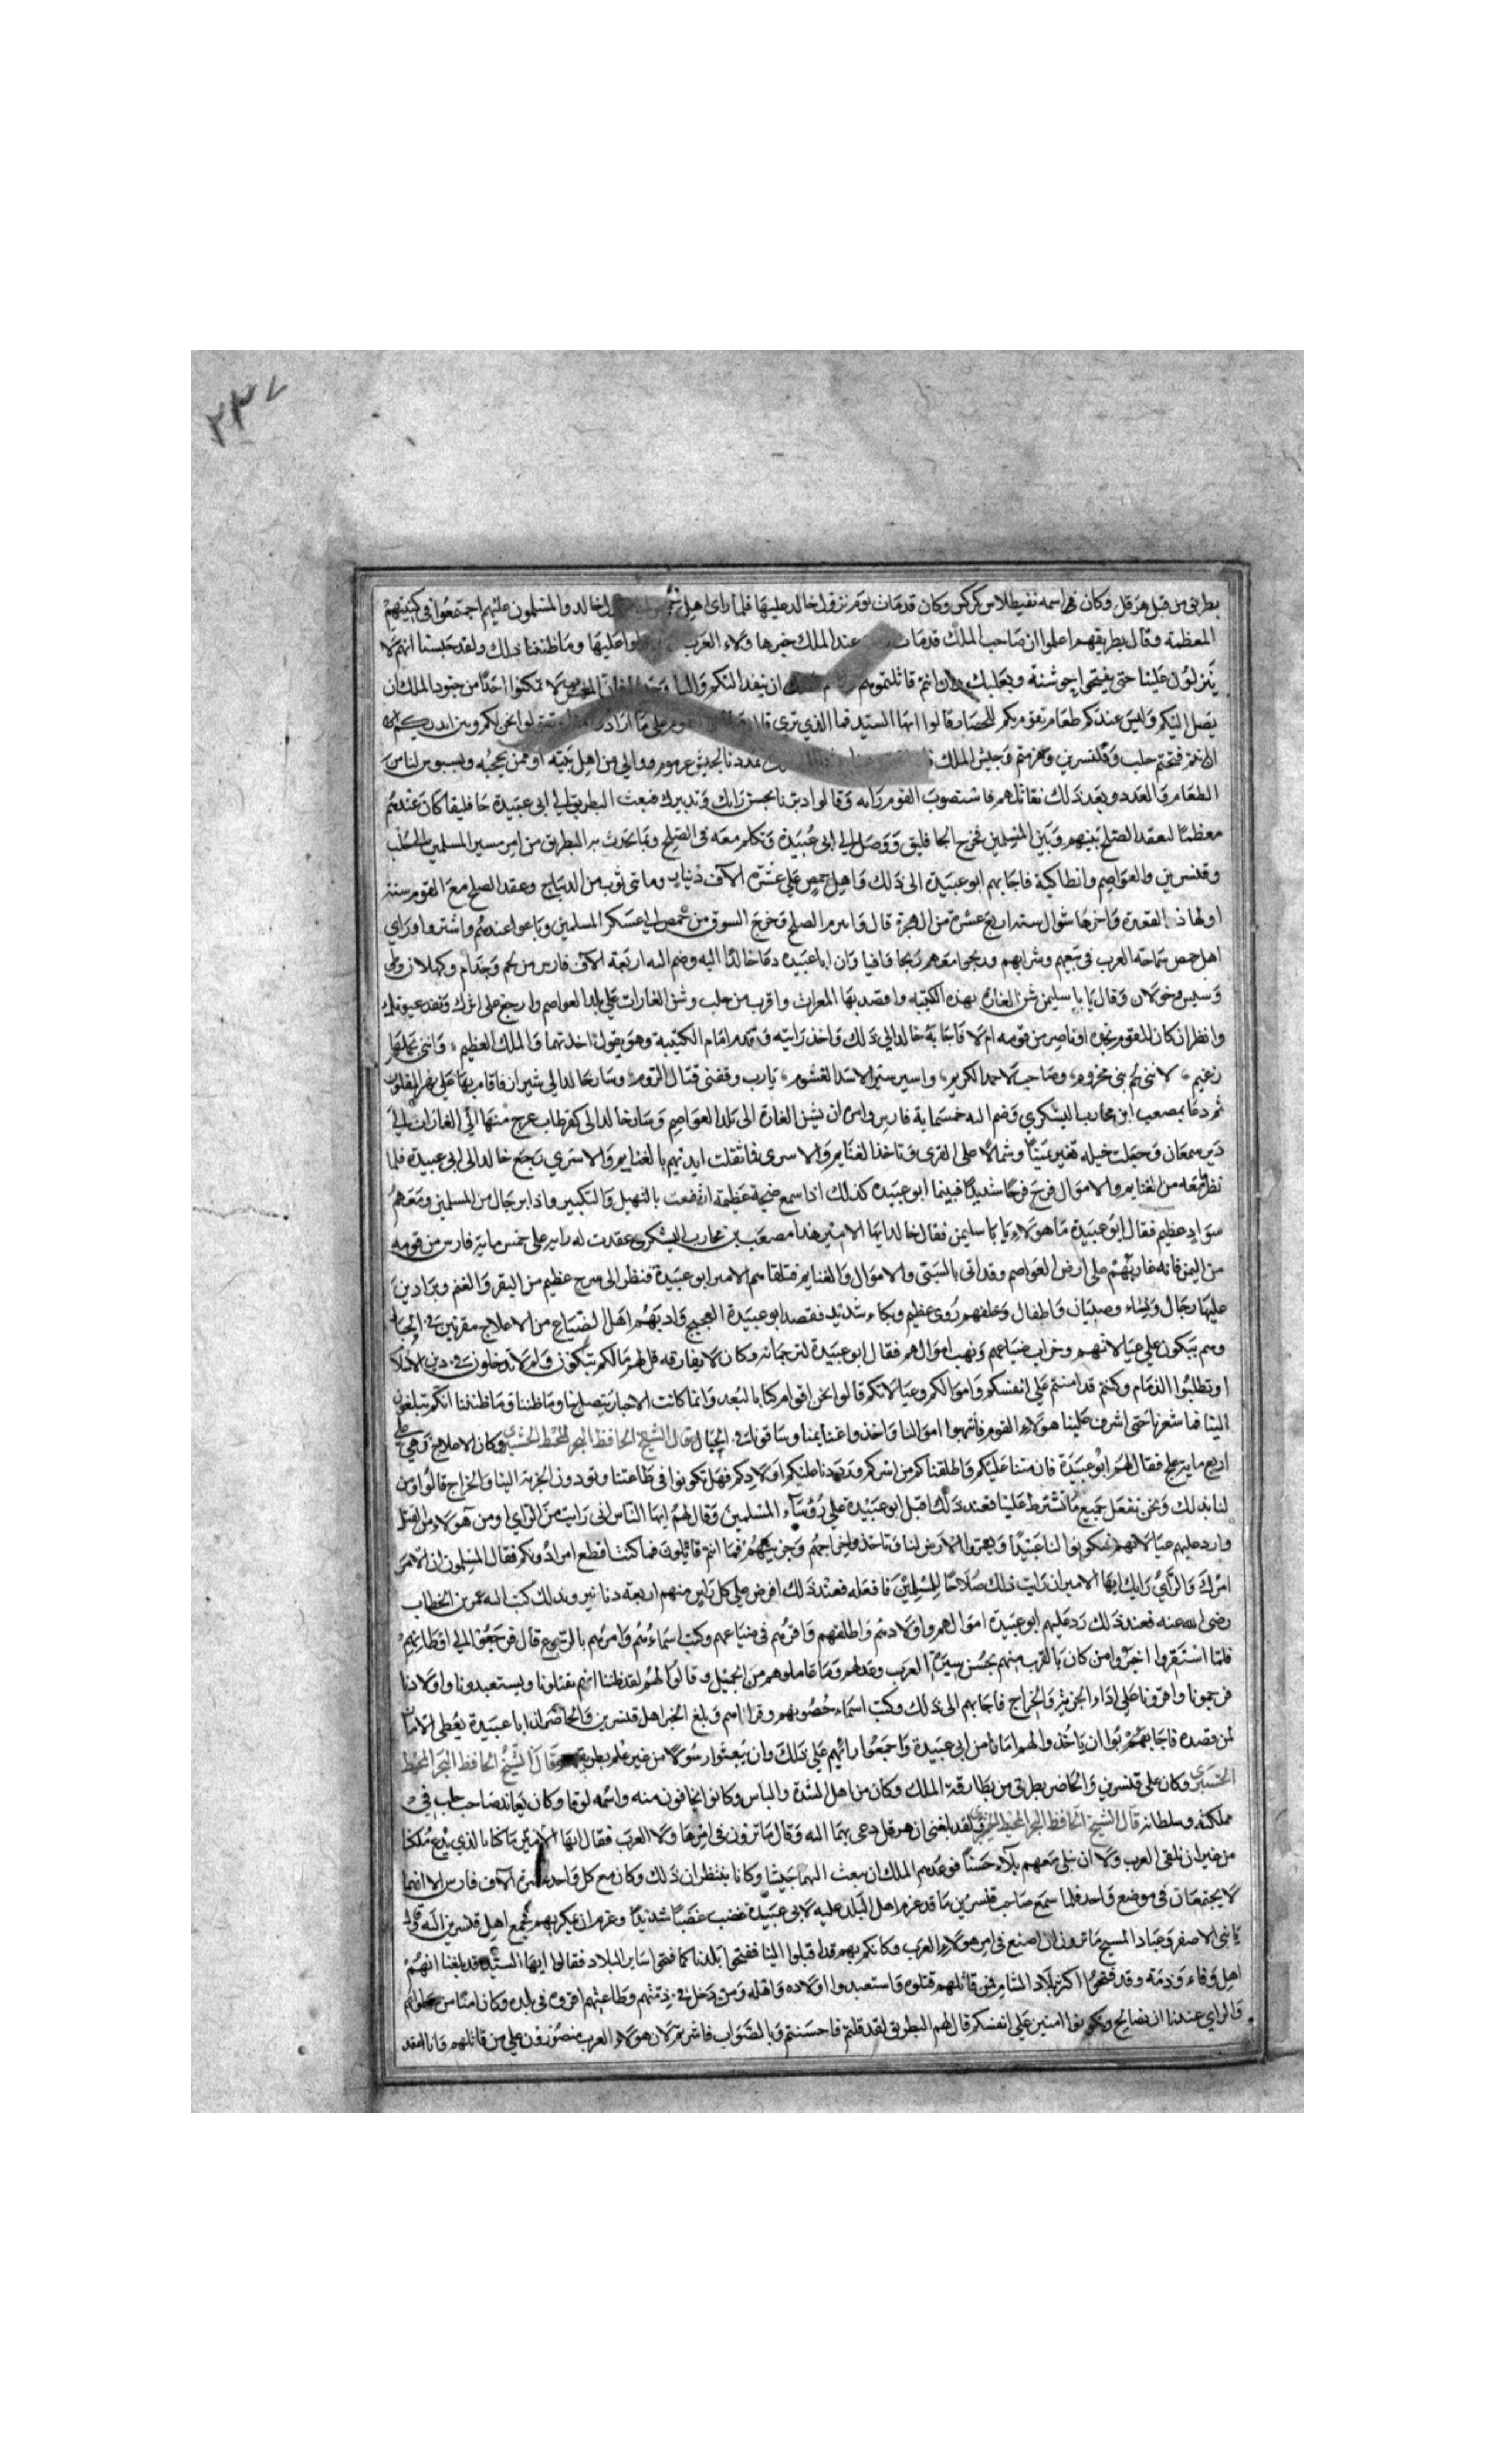 ٢٣٧
بطريق من قبل هرقل وكان اسمه نقيطلاس كركس وكان قد مات يوم نزول خالد عليها فلما راى اهل خالد والمسلمون عليهم اجتمعوا فى كنيستهم
المعظمة وقال بطريقهم اعلموا ان صاحب الملك قد مات عند الملك خبرها ولاء العرب عليها وما ظننا ذلك ولقد حسبنا انهم لا
ينزلون علينا حتى يفتحوا جوشنة وبعلبك وان انتم قاتلتموهم ان ينفد اليكم احدا من جنود الملك ان
يصل اليكم وليس عندكم طعام تقوم بكم للحصار قالوا ايها السيد فما الذي ترى قال على ما ارادوا
ان انتم فتحتم حلب وقنسرين وهزمتم وجيش الملك
الطعام والعدد وبعد ذلك نقاتلهم فاستصوب القوم رايه وقالوا دبرنا بحسن رايك وتدبيرك فبعث البطريق الى ابى عبيدة جاثليقا كان عندهم
معظما لعقد الصلح بينهم وبين المسلمين فخرج الجاثليق ووصل الى ابى عبيدة وتكلم معه فى الصلح وبما تحدث به البطريق من امر مسير المسلمين الى حلب
وقنسرين والعواصم وانطاكية فاجابهم ابو عبيدة الى ذلك واهل حمص على عشرة الاف دينار ومائتى ثوب من الديباج وعقد الصلح مع القوم سنة
اولها ذى القعدة واخرها شوال سنة اربع عشرة من الهجرة قال وابرم الصلح وخرج السوق من حمص الى عسكر المسلمين وباعوا عندهم واشتروا وراى
اهل حمص سماحة العرب فى بيعهم وشرايهم وربحوا معهم ربحا وافيا وان ابا عبيدة دعا خالدا اليه وضم اليه اربعة الاف فارس من لخم وجذام وكهلان وطى
وسبس وخولان وقال يا ابا سليمن شن الغارة بهذه الكتيبة واقصد بها المعرات واقرب من حلب وشن الغارات على بلد العواصم وارجع على اثرك ونفد عيونك
وانظر ان كان للقوم نجدة او ناصر من قومه ام لا فاجابه خالد الى ذلك واخذ رايته وتقدم امام الكتيبة وهو يقول اخذتها والملك العظيم وانني بحملها
زعيم لانني كبش بنى مخزوم وصاحب لاحمد الكريم واسير سير الاسد الغشوم يا رب وفقنى قتال الروم وسار خالد الى شيزر فاقام بها على نهر المقلوب
ثم دعا بمصعب ابن محارب اليشكري وضم اليه خمسماية فارس وامره ان يشن الغارة الى بلد العواصم وسار خالد الى كفرطاب عرج منها الى الغارات الى
دير سمعان وجعلت خيله تغير يمينا وشمالا على القرى وتاخذ الغنايم والاسرى فاثقلت ايديهم بالغنايم والاسرى رجع خالد الى ابى عبيدة فلما
نظر ما معه من الغنايم والاموال فرح فرحا شديدا فبينما ابو عبيدة كذلك اذا سمع ضجة عظيمة ارتفعت بالتهليل والتكبير واذا برجال من المسلمين ومعهم
سواد عظيم فقال ابو عبيدة ما هولاء يا ابا سليمن فقال خالد ايها الامير هذا مصعب بن محارب اليشكرى عقدت له راية على خمس ماية فارس من قومه
من اليمن فانه غار بهم على ارض العواصم وقد اتى بالسبى والاموال والغنايم فتلقاهم الامير ابو عبيدة فنظر الى سرح عظيم من البقر والغنم وبراذين
عليها رجال ونساء وصبيان واطفال وخلفهم دوى عظيم وبكاء شديد فقصد ابو عبيدة العجيج واذا بهم اهل الضياع من الاعلاج مقرنين فى الحبال
وهم يبكون على عيالاتهم وخراب ضياعهم ونهب اموالهم فقال ابو عبيدة لترجمانه وكان لا يفارقه قل لهم ما لكم تبكون ولم لا تدخلون فى دين الاسلام
او تطلبوا الذمام وكنتم قد امنتم على انفسكم واموالكم وعيالاتكم قالوا نحن اقوام كنا بالبعد وانما كانت الاخبار تتصل بنا وما ظننا انكم تبلغون
الينا فما شعرنا حتى اشرف علينا هولاء القوم فانتهبوا اموالنا واخذوا غنايمنا وساقونا فى الحبال قال الشيخ الحافظ البحر المحيط وكان الاعلاج زهى على
اربع ماية علج فقال لهم ابو عبيدة فان مننا عليكم واطلقناكم من اسركم ورددنا عليكم اولادكم فهل تكونوا فى طاعتنا وتودون الجزية الينا والخراج قالوا ومن
لنا بذلك ونحن نفعل جميع ما تشترط علينا فعند ذلك اقبل ابو عبيدة على رؤساء المسلمين وقال لهم ايها الناس انى رايت من الراى اومن هولاء من القتل
وارد عليهم عيالاتهم فيكونوا لنا عبيدا ويعمروا الارض لنا وتاخذوا خراجهم وجزيتهم فما انتم قائلون فما كنت اقطع امرا دونكم فقال المسلمون ان الامر
امرك والراى رايك ايها الامير ان رايت ذلك صلاحا للمسلمين فافعله فعند ذلك افرض على كل راس منهم اربعة دنانير وبذلك كتب اليه عمر بن الخطاب
رضى الله عنه فعند ذلك رد عليهم ابو عبيدة اموالهم واولادهم واطلقهم واقرهم فى ضياعهم وكتب اسماءهم وامرهم بالرجوع قال فرجعوا الى اوطانهم
فلما استقروا اخبروا من كان بالقرب منهم بحسن سيرة العرب وعدلهم وما عاملوهم من الجميل وقالوا لهم لقد ظننا انهم يقتلونا ويستعبدونا واولادنا
فرحمونا واقرونا على اداء الجزية والخراج فاجابهم الى ذلك وكتب اسماء حصونهم وقراياهم وبلغ الخبر اهل قنسرين والحاضر ان ابا عبيدة يعطى الامان
لمن قصده فاجابهم ان ياخذوا لهم امانا من ابى عبيدة واجمعوا رائهم على ذلك وان يبعثوا رسولا من غير علم بطريقهم قال الشيخ الحافظ البحر المحيط
وكان على قنسرين والحاضر بطريق من بطارقة الملك وكان من اهل الشدة والباس وكانوا يخافون منه واسمه لوقا وكان يعاند صاحب حلب فى
مملكته وسلطانه قال الشيخ الحافظ البحر المحيط لقد بلغنى ان هرقل دعى بهما اليه وقال ما ترون فى امر هاولاء العرب فقال ايها الامير ما كنا بالذى يدع ملكنا
من غير ان نلقى العرب ولا ان نبلى معهم بلاء حسنا فوعدهم الملك ان يبعث اليهما جيشا وكانا ينتظران ذلك وكان مع كل واحد عشرة الاف فارس الا انهما
لا يجتمعان فى موضع واحد فلما سمع صاحب قنسرين ما قد عزم اهل البلد عليه لابى عبيدة غضب غضبا شديدا وعزم ان يمكر بهم فجمع اهل قنسرين اليه وقال
يا بنى الاصفر وعباد المسيح ما ترون ان اصنع فى امر هولاء العرب وكانكم بهم قد اقبلوا الينا ففتحوا بلدنا كما فتحوا ساير البلاد فقالوا ايها السيد قد بلغنا انهم
اهل وفاء وذمة وقد فتحوا اكثر بلاد الشام فمن قاتلهم قتلوه واستعبدوا اولاده واهله ومن دخل فى ذمتهم وطاعتهم اقروه فى بلده وكان امنا من
والراى عندنا ان نصالح ونكونوا امنين على انفسكم قال لهم البطريق لقد قلتم فاحسنتم وبالصواب فاشرتم لان هولاء العرب منصورون على من قاتلهم وانا اعقد